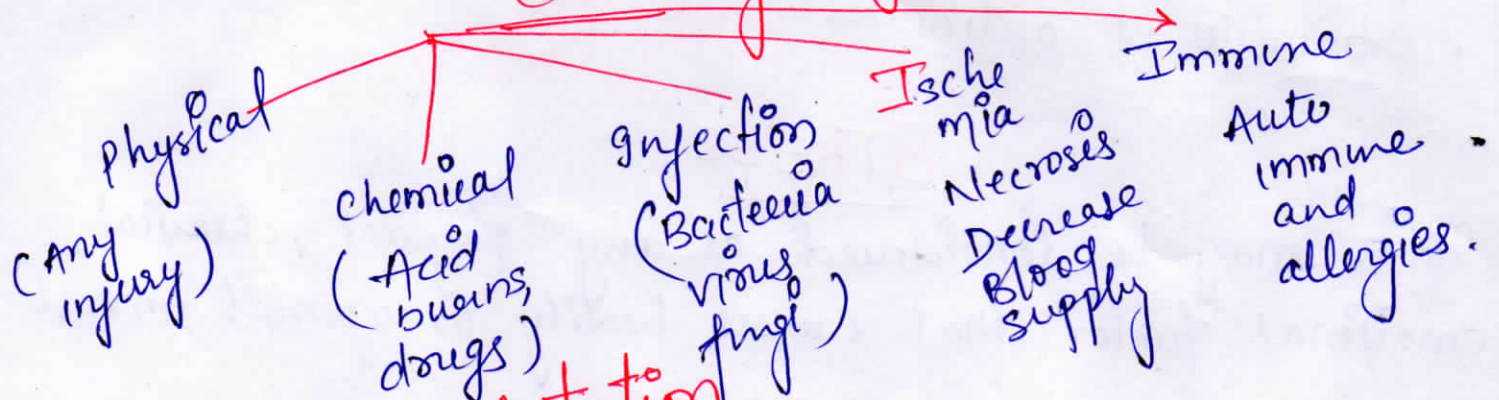 Physical
(Any
injury)
Chemical
(Acid
burns,
drugs)
Infection
(Bacteria
virus
fungi)
Ische
mia
Necrosis
Decrease
Blood
supply
Immune
Auto
immune
and
allergies.